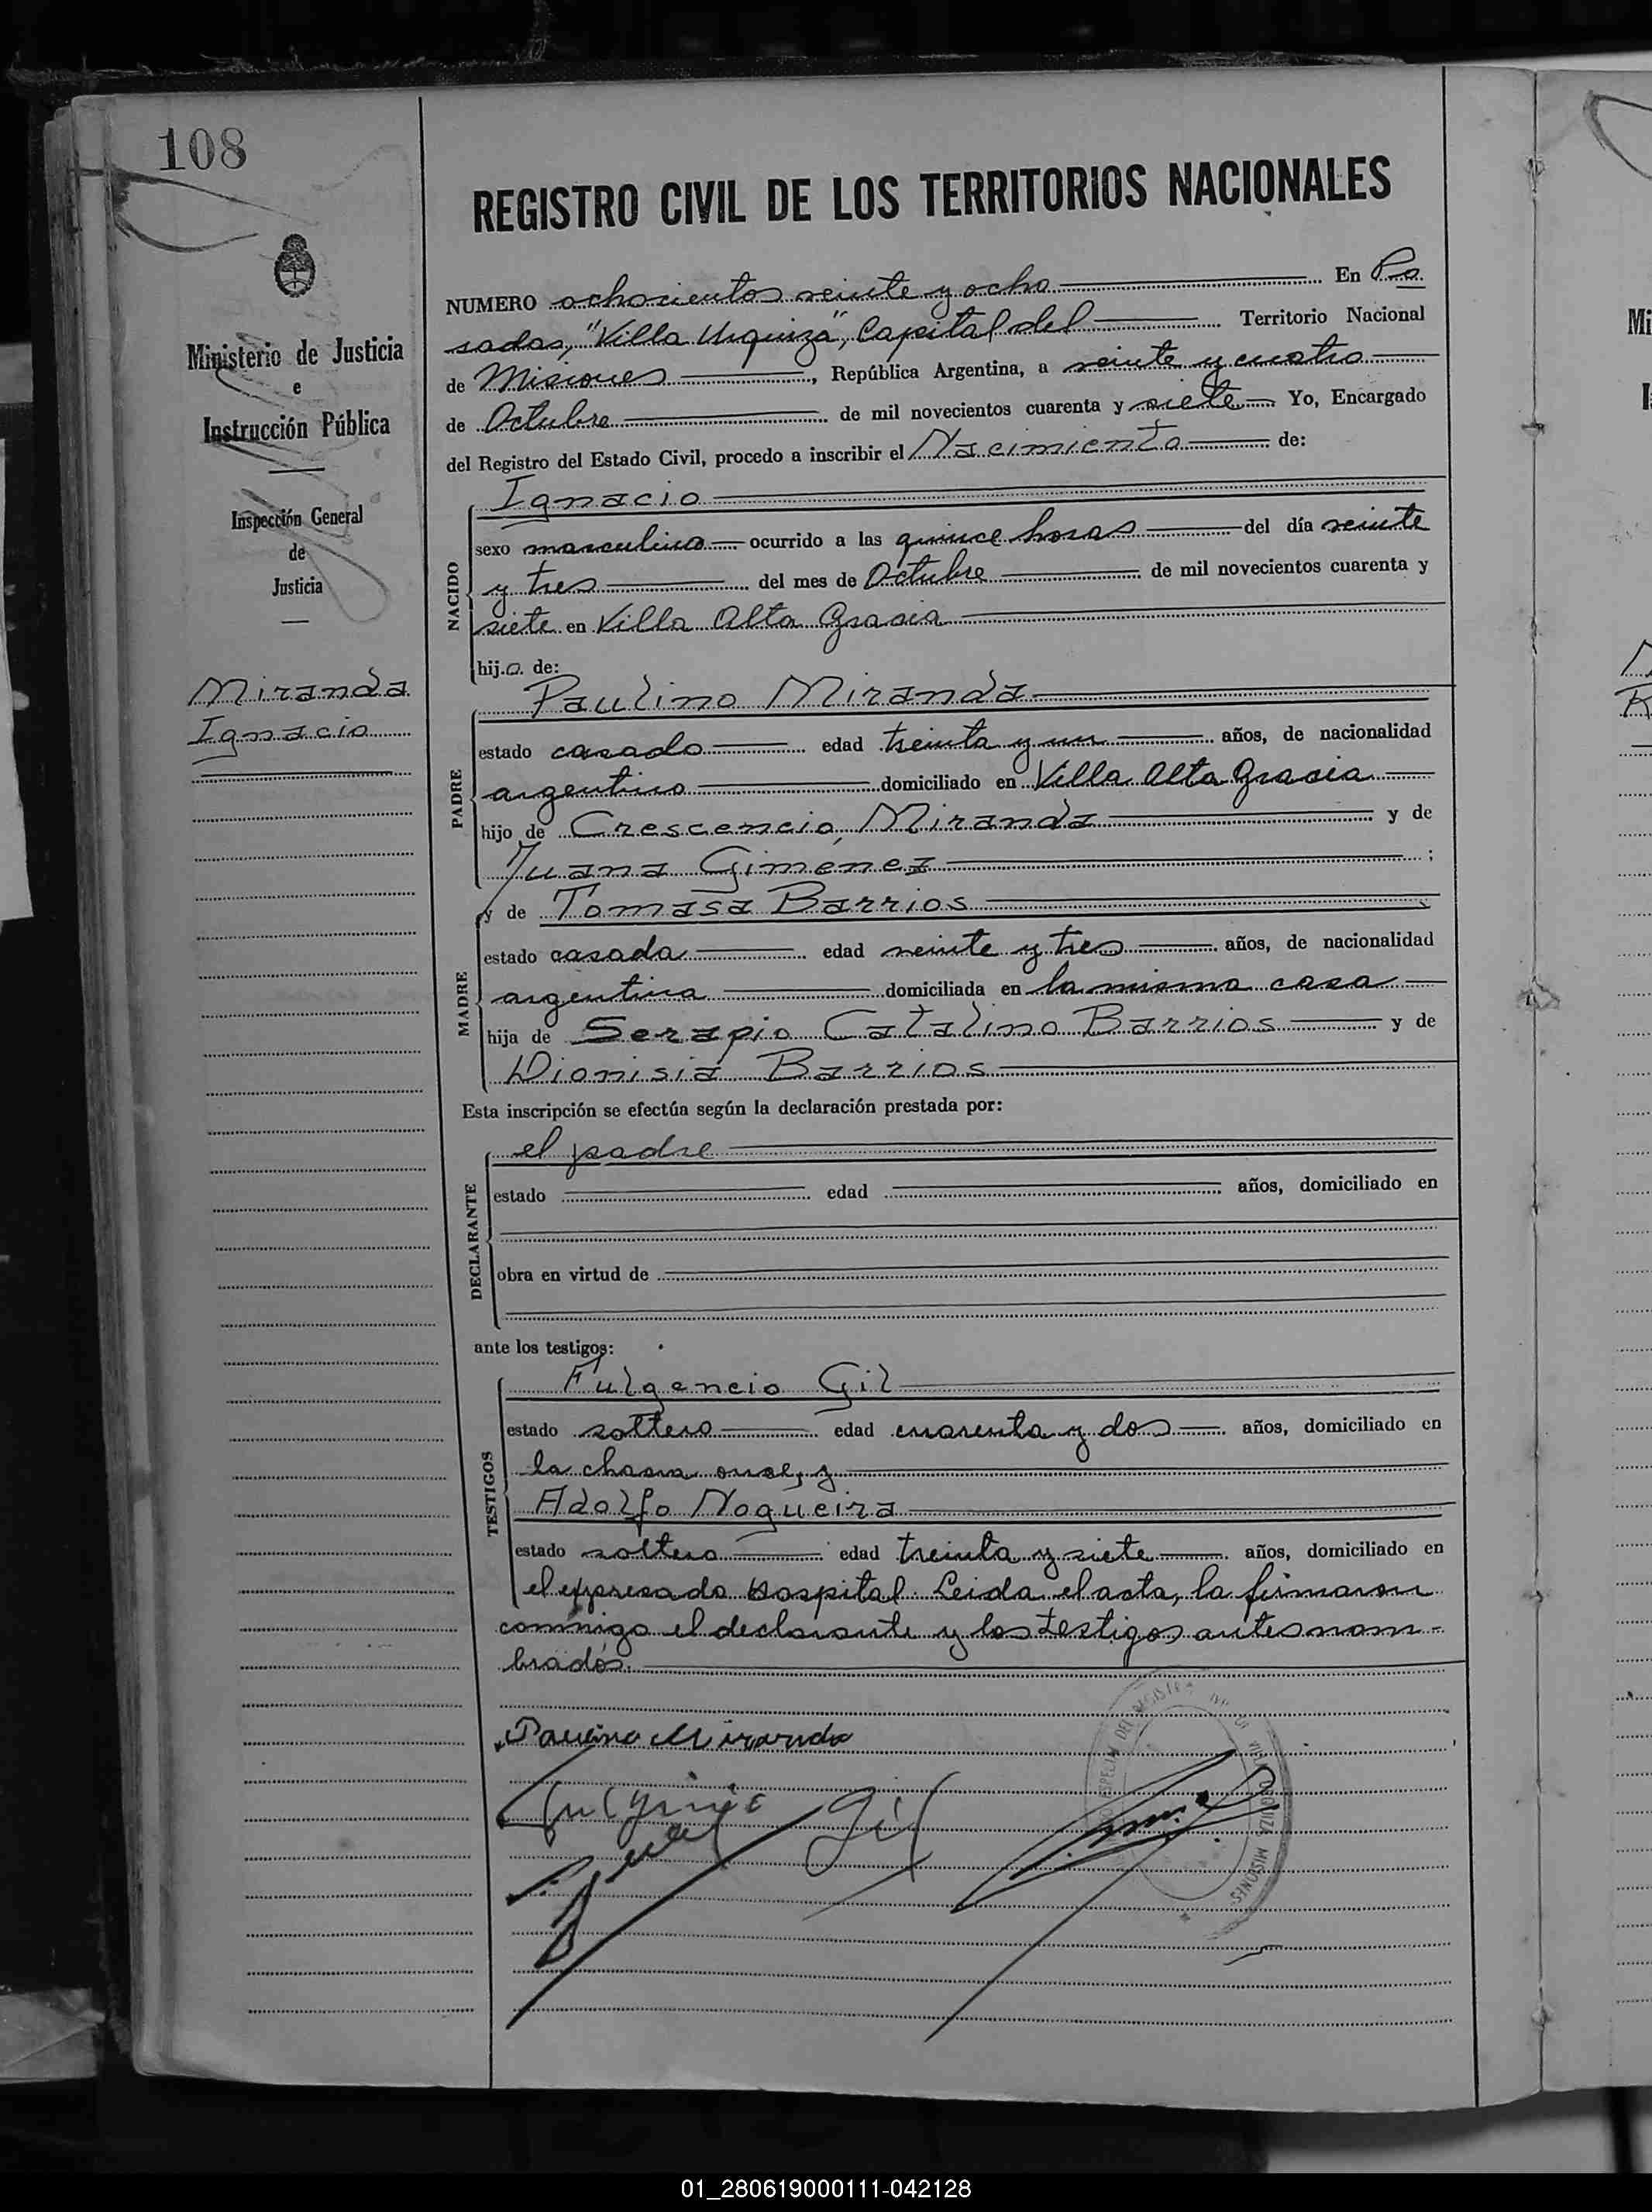 108
REGISTRO CIVIL DE LOS TERRITORIOS NACIONALES
NUMERO ochocientos veinte y ocho En Po
sadas, "Villa Urquiza", Capital del Territorio Nacional
de Misiones, República Argentina, a veinte y cuatro
de Octubre de mil novecientos cuarenta y siete Yo, Encargado
del Registro del Estado Civil, procedo a inscribir el Nacimiento de:
Ministerio de Justicia
e
Instrucción Pública
Inspección General
de
Justicia
Miranda
Ignacio
NACIDO
Ignacio
sexo masculino ocurrido a las quince horas del día veinte
y tres del mes de Octubre de mil novecientos cuarenta y
siete en Villa Alta Gracia
hijo de:
PADRE
Paulino Miranda
estado casado edad treinta y un años, de nacionalidad
argentino domiciliado en Villa Alta Gracia
hijo de Crescencio Miranda y de
Juana Giménez ;
MADRE
y de Tomasa Barrios
estado casada edad veinte y tres años, de nacionalidad
argentina domiciliada en la misma casa
hija de Serapio Catalino Barrios y de
Dionisia Barrios
Esta inscripción se efectúa según la declaración prestada por:
DECLARANTE
el padre
estado edad años, domiciliado en
obra en virtud de
ante los testigos:
TESTIGOS
Fulgencio Gil
estado soltero edad cuarenta y dos años, domiciliado en
la chacra once, y
Adolfo Nogueira
estado soltero edad treinta y siete años, domiciliado en
el expresado Hospital. Leida el acta, la firmaron
conmigo el declarante y los testigos antes nom-
brados.
Paulino Miranda
Gil
URQUIZA MISIONES
01_280619000111-042128